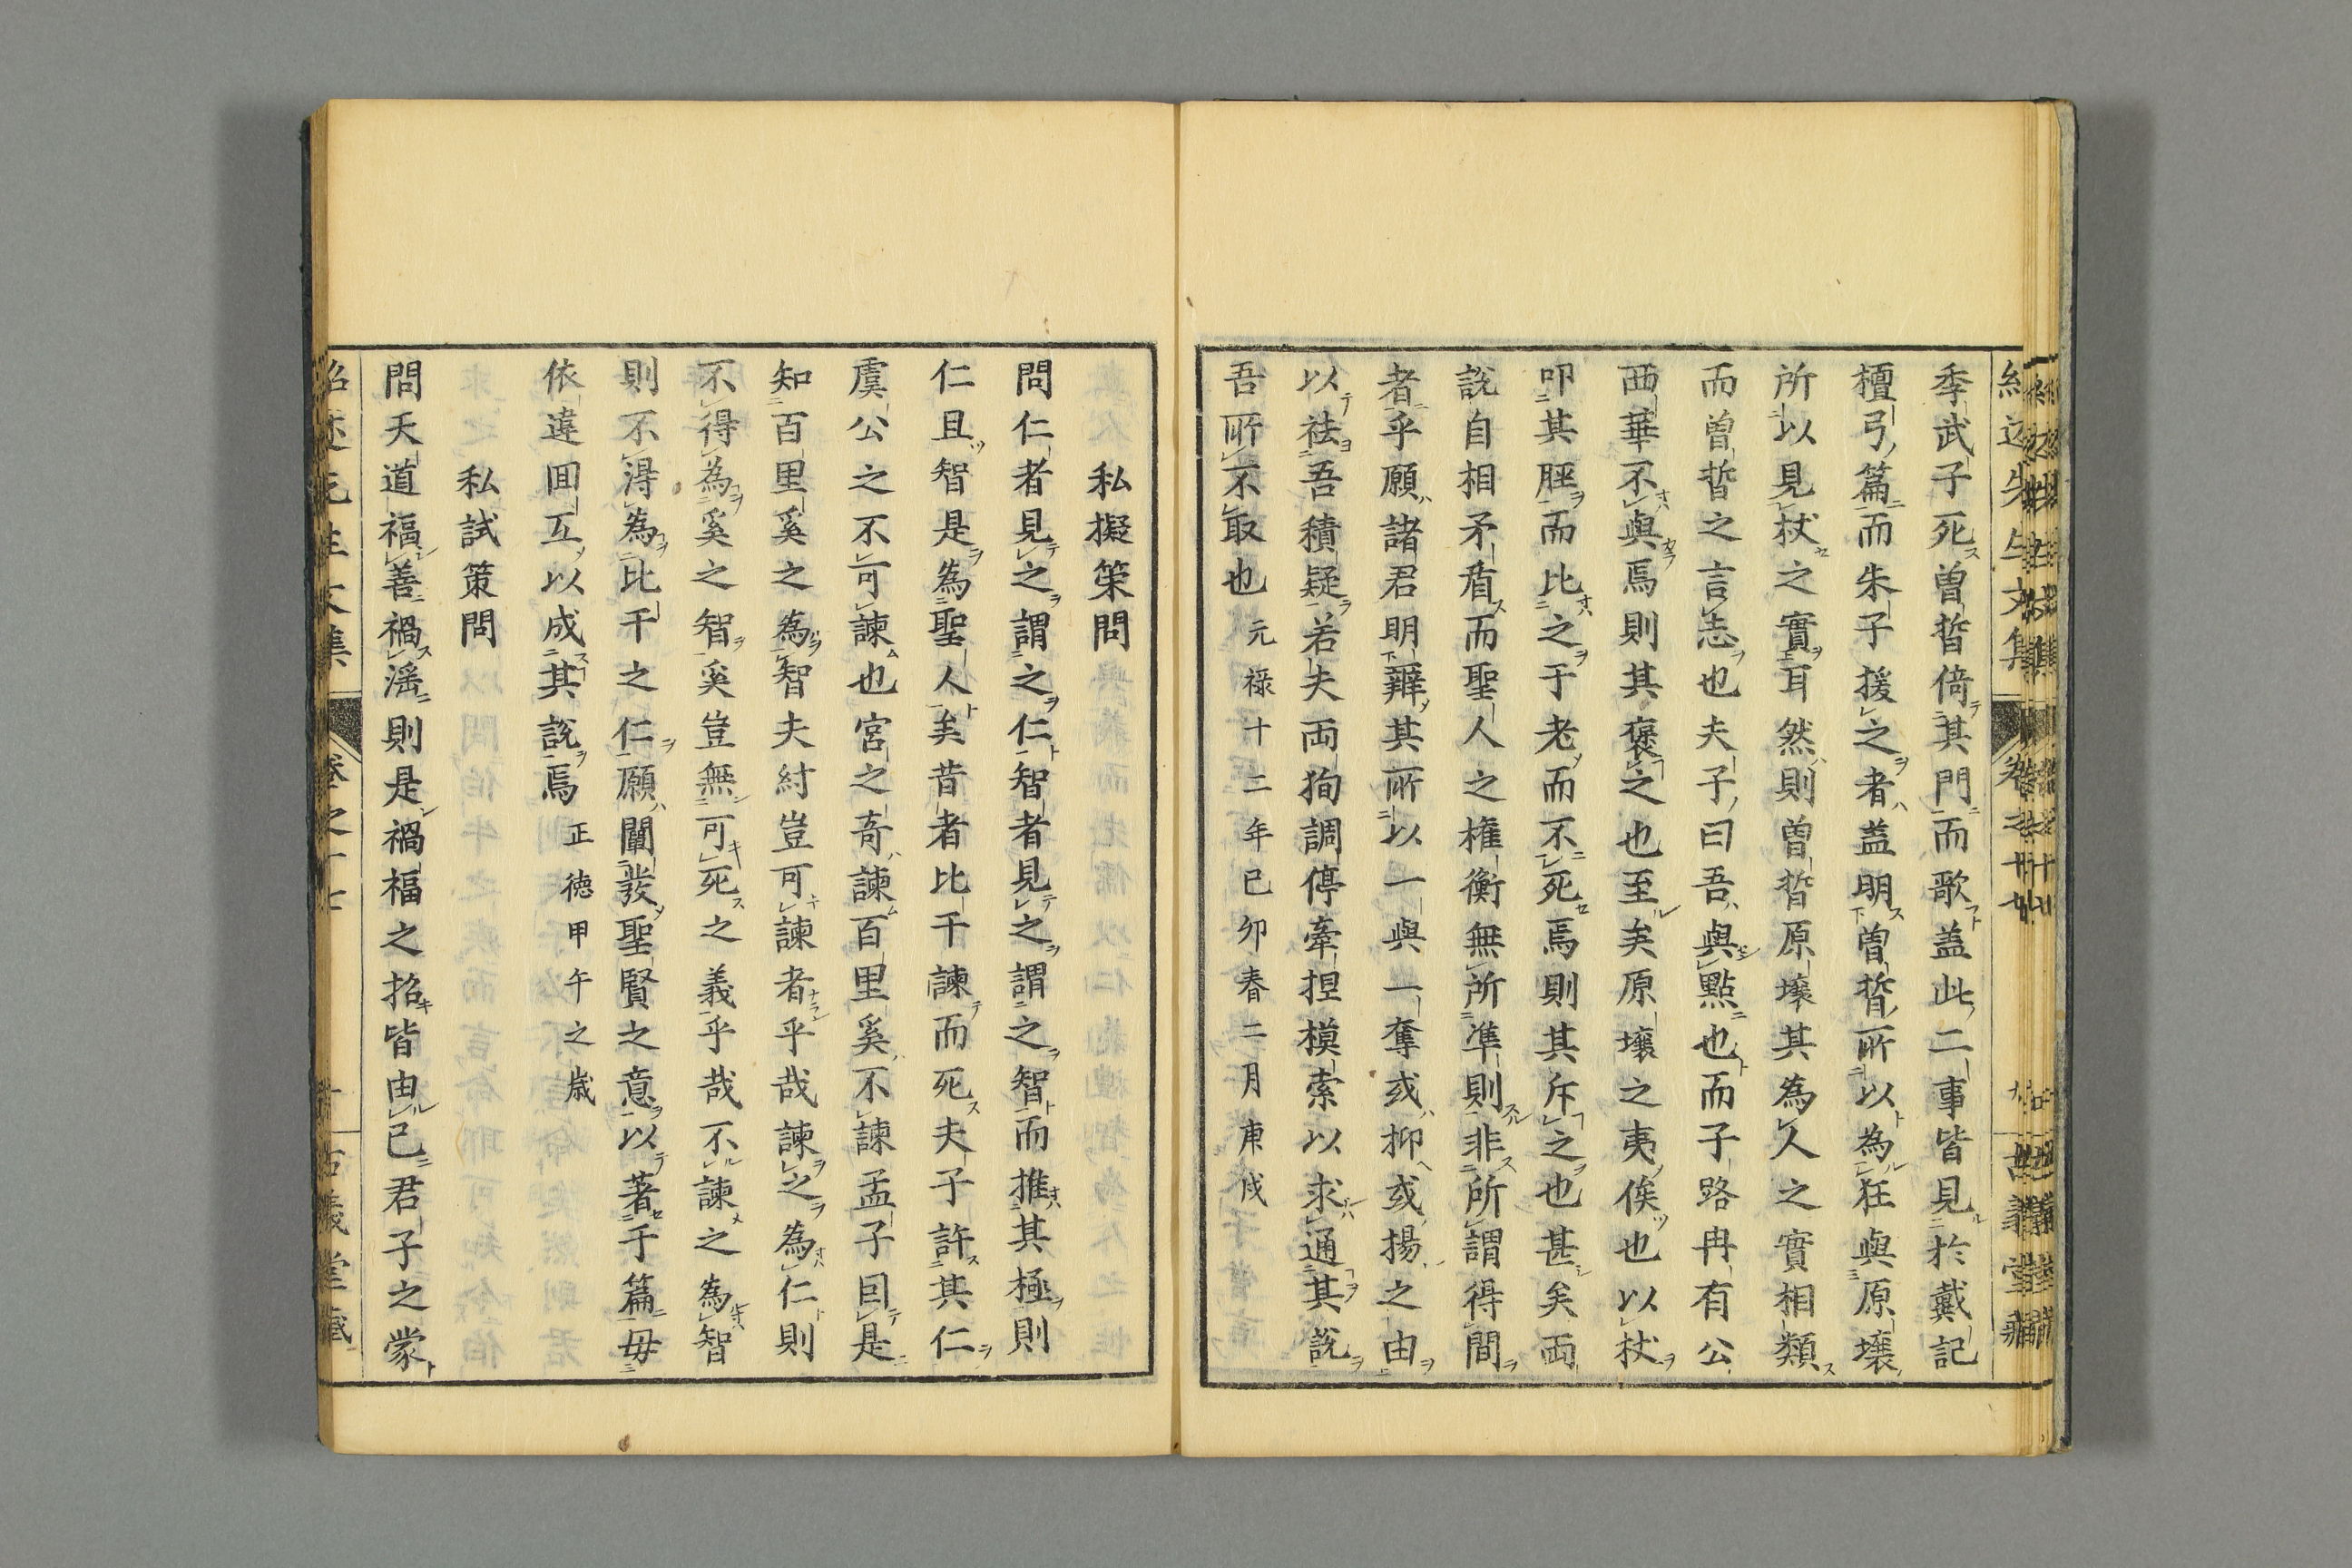 季武子死曽晳倚其門而歌盖此二事皆見於戴記
檀弓篇而朱子援之者盖明曽晳所以為狂與原壤
所以見杖之實耳然則曽晳原壌其為人之實相類
而曽晳之言志也夫子曰吾與點也而子路冉有公
西華不與焉則其褒之也至矣原壤之夷俟也以杖
叩其脛而比之于老而不死焉則其斥之也甚矣両
說自相矛盾而聖人之権衡無所準則非所謂得間
者乎願諸君明辯其所以一與一奪或抑或揚之由
以祛吾積疑若夫両徇調停牽捏模索以求通其説
吾所不取也 元禄十二年己卯春二月庚戌
私擬策問
問仁者見之謂之仁智者見之謂之智而推其極則
仁且智是為聖人矣昔者比干諫而死夫子許其仁
虞公之不可諫也宮之竒諫百里奚不諫孟子曰是
知百里奚之為智夫紂豈可諫者乎哉諫之為仁則
不得為奚之智奚豈無可死之義乎哉不諫之為智
則不淂為比干之仁願闡發聖賢之意以著于篇毋
依違囬互以成其說焉 正徳甲午之歳
私試策問
問天道福善禍滛則是禍福之招皆由己君子之蒙
紹述先生文集 卷之十七 古義堂蔵